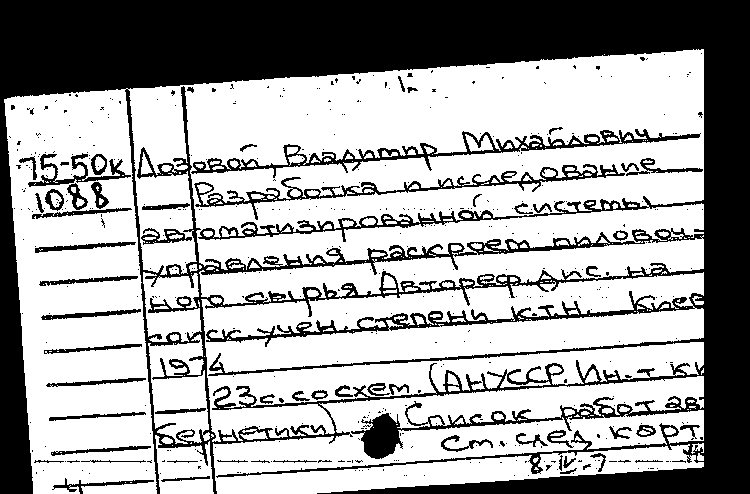 75-50к Лозовой, Владимир Михайлович.
1088 Разработка и исследование
автоматизированной системы
управления раскроем пиловоч-
ного сырья. Автореф. дис. на
соиск. учен. степени к.т.н. Киев
1974
23с. со схем. (АН УССР. Ин-т ки
бернетики) Список работ ав
См. след. карт.